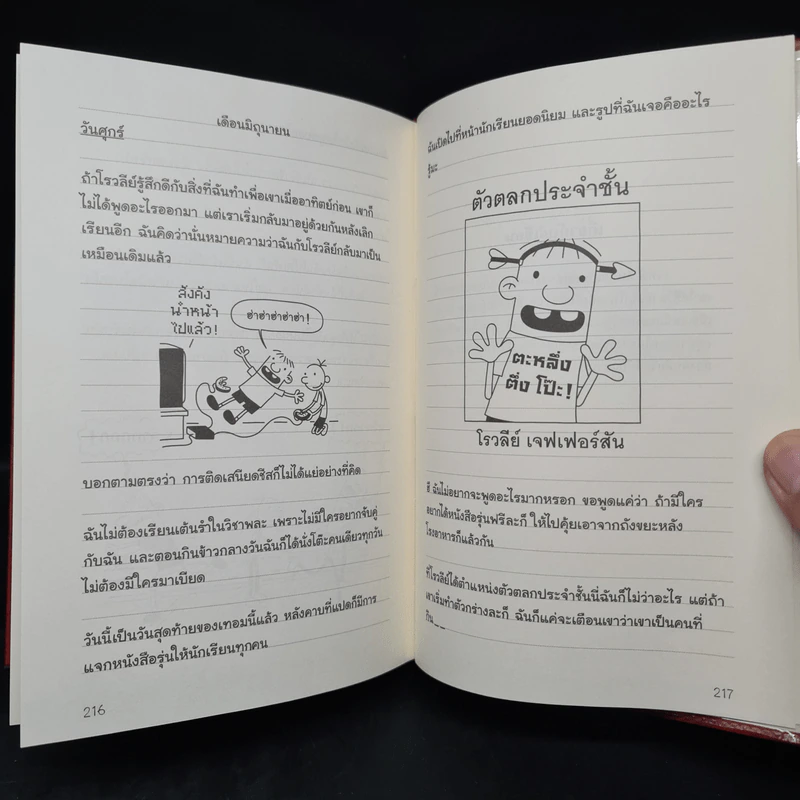 เดือนมิถุนายน
วันศุกร์
ถ้าโรวลีย์รู้สึกดีกับสิ่งที่ฉันทำเพื่อเขาเมื่ออาทิตย์ก่อน เขาก็
ไม่ได้พูดอะไรออกมา แต่เราเริ่มกลับมาอยู่ด้วยกันหลังเลิก
เรียนอีก ฉันคิดว่านั่นหมายความว่าฉันกับโรวลีย์กลับมาเป็น
เหมือนเดิมแล้ว
สังคัง
นำหน้า
ไปแล้ว!
ฮ่าฮ่าฮ่าฮ่าฮ่า!
บอกตามตรงว่า การติดเสนียดชีสก็ไม่ได้แย่อย่างที่คิด
ฉันไม่ต้องเรียนเต้นรำในวิชาพละ เพราะไม่มีใครอยากจับคู่
กับฉัน และตอนกินข้าวกลางวันฉันก็ได้นั่งโต๊ะคนเดียวทุกวัน
ไม่ต้องมีใครมาเบียด
วันนี้เป็นวันสุดท้ายของเทอมนี้แล้ว หลังคาบที่แปดก็มีการ
แจกหนังสือรุ่นให้นักเรียนทุกคน
216
ฉันเปิดไปที่หน้านักเรียนยอดนิยม และรูปที่ฉันเจอคืออะไร
รู้มะ
ตัวตลกประจำชั้น
ตะหลึ่ง
ตึ่ง โป๊ะ!
โรวลีย์ เจฟเฟอร์สัน
ฉันไม่อยากจะพูดอะไรมากหรอก ขอพูดแค่ว่า ถ้ามีใคร
อยากได้หนังสือรุ่นฟรีละก็ ให้ไปคุ้ยเอาจากถังขยะหลัง
โรงอาหารก็แล้วกัน
ที่โรวลีย์ได้ตำแหน่งตัวตลกประจำชั้นนี่ฉันก็ไม่ว่าอะไร แต่ถ้า
เขาเริ่มทำตัวกร่างละก็ ฉันก็แค่จะเตือนเขาว่าเขาเป็นคนที่
กิน__
217